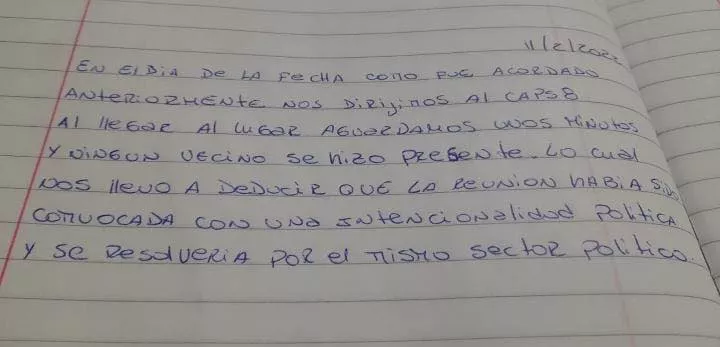 11/2/2022
EN El DIA DE LA FECHA COMO FUE ACORDADO
ANTERIORMENTE NOS DIRIJIMOS Al CAPS 8
Al llEGAR Al LUGAR AGUARDAMOS UNOS MINUTOS
Y NINGUN VECINO Se hizo PRESENTE. LO CUAL
NOS llevo A DEDUCIR QUE LA REUNION HABIA SIDO
CONVOCADA CON UNA INTENCIONALIDAD POLITICA
Y SE RESOLVERIA POR el MISMO SECTOR POLITICO.